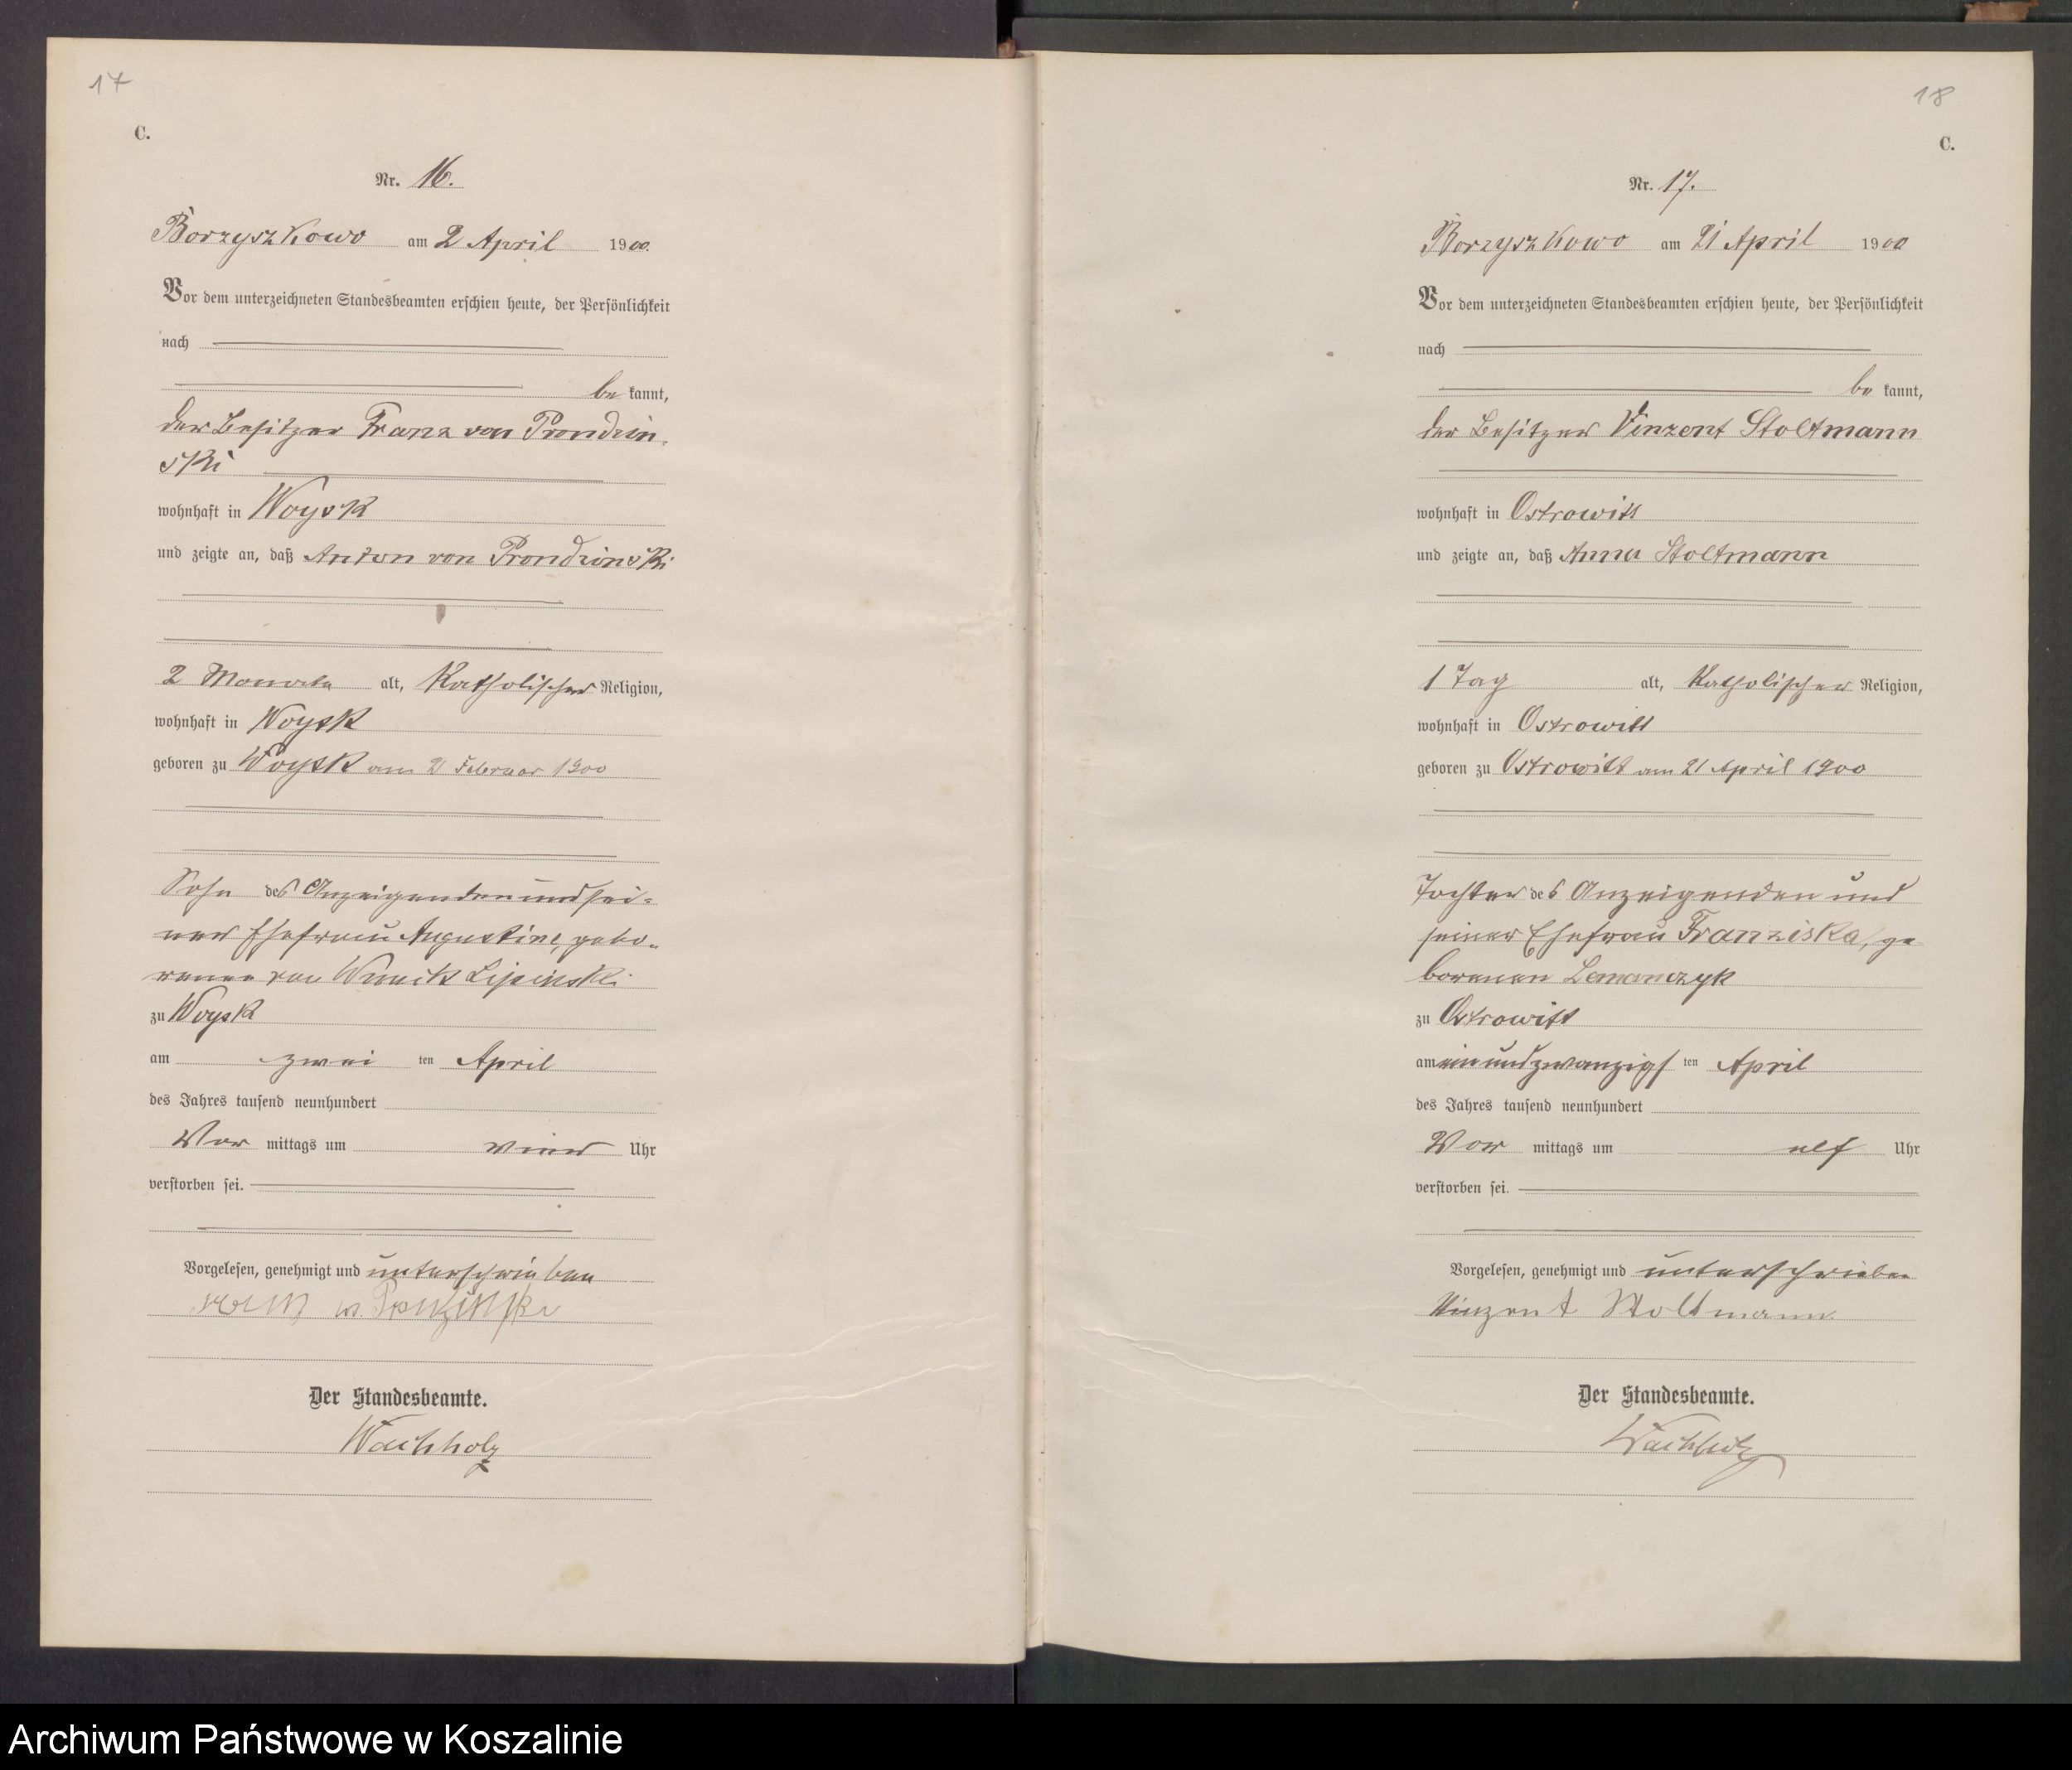 17
C.
Nr. 16.
Borzyszkowo am 2 April 1900.
Vor dem unterzeichneten Standesbeamten erschien heute, der Persönlichkeit
nach
be kannt,
der Besitzer Franz von Prondzin-
ski
wohnhaft in Woysk
und zeigte an, daß Anton von Prondzinski
2 Monate alt, Katholischer Religion,
wohnhaft in Woysk
geboren zu Woysk am 2 Februar 1900
Sohn des Anzeigenden und sei-
ner Ehefrau Augustine, gebo-
renen von Lipinski
zu Woysk
am zwei ten April
des Jahres tausend neunhundert
Vor mittags um vier Uhr
verstorben sei.
Vorgelesen, genehmigt und unterschrieben
Der Standesbeamte.
Wachholz
18
C.
Nr. 17.
Borzyszkowo am 21 April 1900
Vor dem unterzeichneten Standesbeamten erschien heute, der Persönlichkeit
nach
be kannt,
der Besitzer Vinzent Stoltmann
wohnhaft in Ostrowitt
und zeigte an, daß Anna Stoltmann
1 Tag alt, Katholischer Religion,
wohnhaft in Ostrowitt
geboren zu Ostrowitt am 21 April 1900
Tochter des Anzeigenden und
seiner Ehefrau Franziska, ge
borenen Lemanczyk
zu Ostrowitt
am einundzwanzigs ten April
des Jahres tausend neunhundert
Vor mittags um elf Uhr
verstorben sei.
Vorgelesen, genehmigt und unterschrieben
Vinzent Stoltmann
Der Standesbeamte.
Wachholz
Archiwum Państwowe w Koszalinie